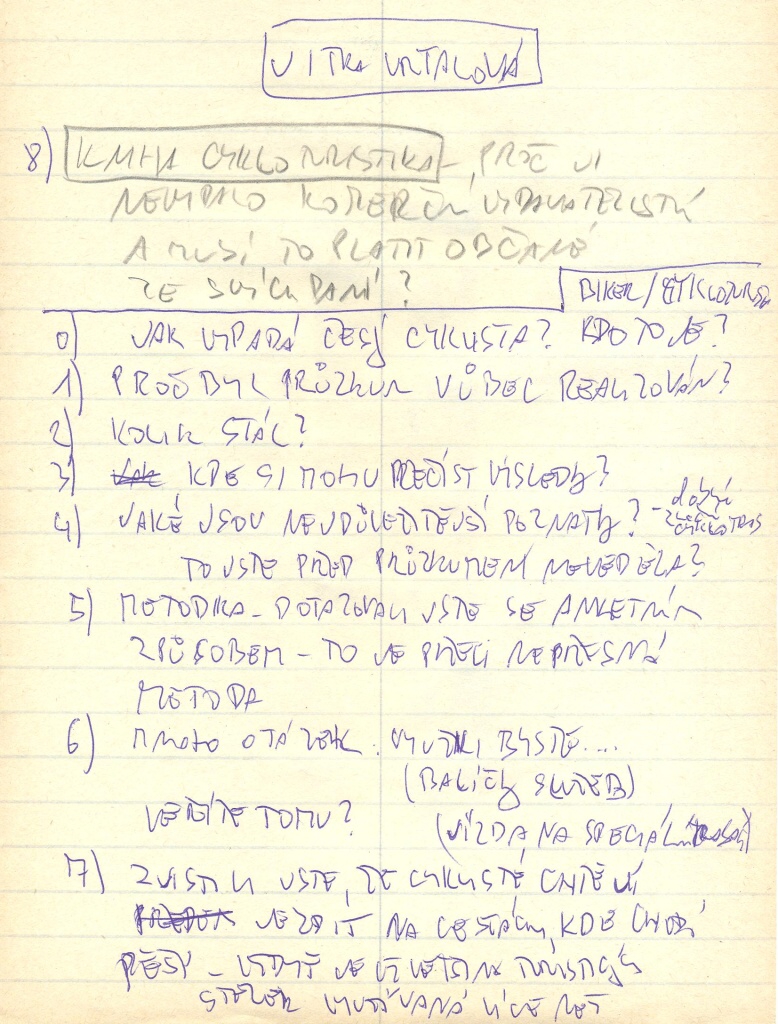 JITKA VRTALOVÁ
8) KNIHA CYKLOTURISTIKA - PROČ JI
NEVYDALO KOMERČNÍ VYDAVATELSTVÍ
A MUSÍ TO PLATIT OBČANÉ
ZE SVÝCH DANÍ?
BIKER/
0) JAK VYPADÁ ČESKÝ CYKLISTA? KDO TO JE?
1) PROČ BYL PRŮZKUM VŮBEC REALIZOVÁN?
2) KOLIK STÁL?
3) KDE SI MOHU PŘEČÍST VÝSLEDKY?
4) JAKÉ JSOU NEJDŮLEŽITĚJŠÍ POZNATKY? -
TO JSTE PŘED PRŮZKUMEM NEVĚDĚLA?
5) METODIKA - DOTAZOVALI JSTE SE ANKETNÍM
ZPŮSOBEM - TO JE PŘECI NEPŘESNÁ
METODA
6) MNOHO OTÁZEK: VYUŽILI BYSTE....
(BALÍČKY SLUŽEB)
VĚŘÍTE TOMU?
(JÍZDA NA SPECIÁLNÍ
7) ZJISTILI JSTE, ŽE CYKLISTÉ CHTĚJÍ
JEZDIT NA CESTÁCH, KDE CHODÍ
PĚŠÍ - VŽDYŤ JE VĚTŠINA TURISTICKÝCH
STEZEK VYUŽÍVANÁ VÍCE NEŽ